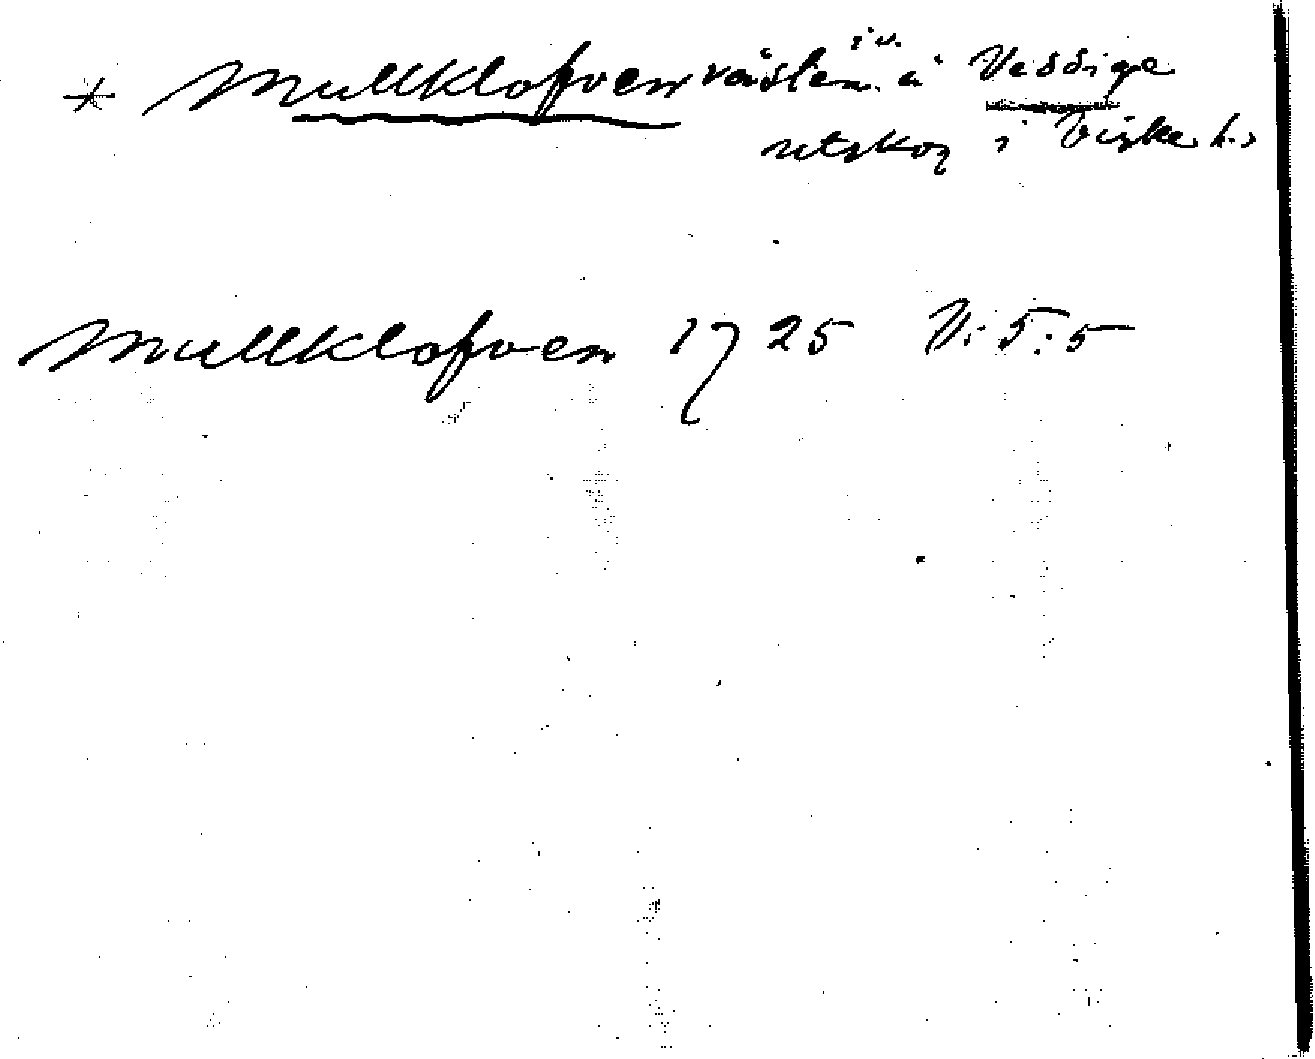 * Mullklofven växlen i v. å Vessige
utskog i Viske h.s
Mullklofven 1725 V: 5: 5